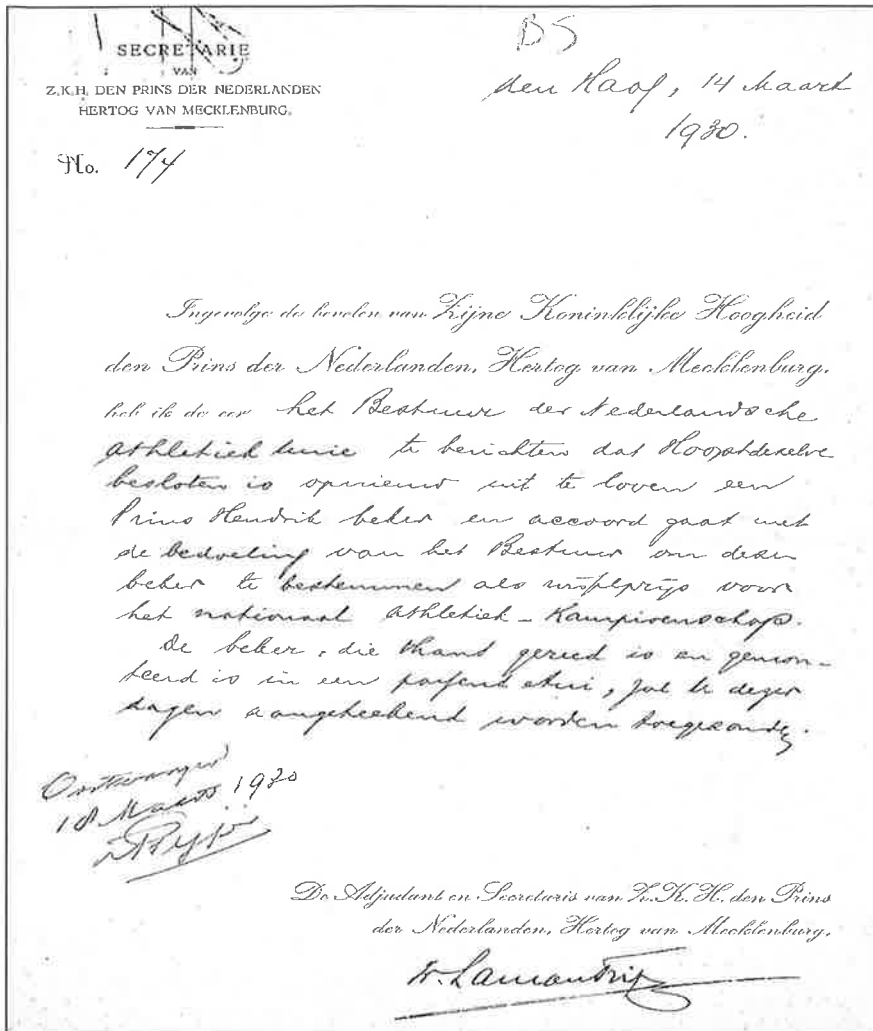 SECRETARIE
VAN
Z.K.H. DEN PRINS DER NEDERLANDEN
HERTOG VAN MECKLENBURG.
No. 174
BS
den Haag, 14 Maart
1930.
Ingevolge de bevelen van Zijne Koninklijke Hoogheid
den Prins der Nederlanden, Hertog van Mecklenburg,
heb ik de eer het Bestuur der Nederlandsche
Athletiek Unie te berichten dat Hoogstdezelve
besloten is opnieuw uit te loven een
Prins Hendrik beker en accoord gaat met
de bedoeling van het Bestuur om dezen
beker te bestemmen als wisselprijs voor
het nationaal Athletiek-Kampioenschap.
De beker, die thans gereed is en gemon-
teerd is in een passend etui, zal te dezer
dagen aangeteekend worden toegezonden.
Ontvangen
18 Maart 1930
De Adjudant en Secretaris van Z.K.H. den Prins
der Nederlanden, Hertog van Mecklenburg,